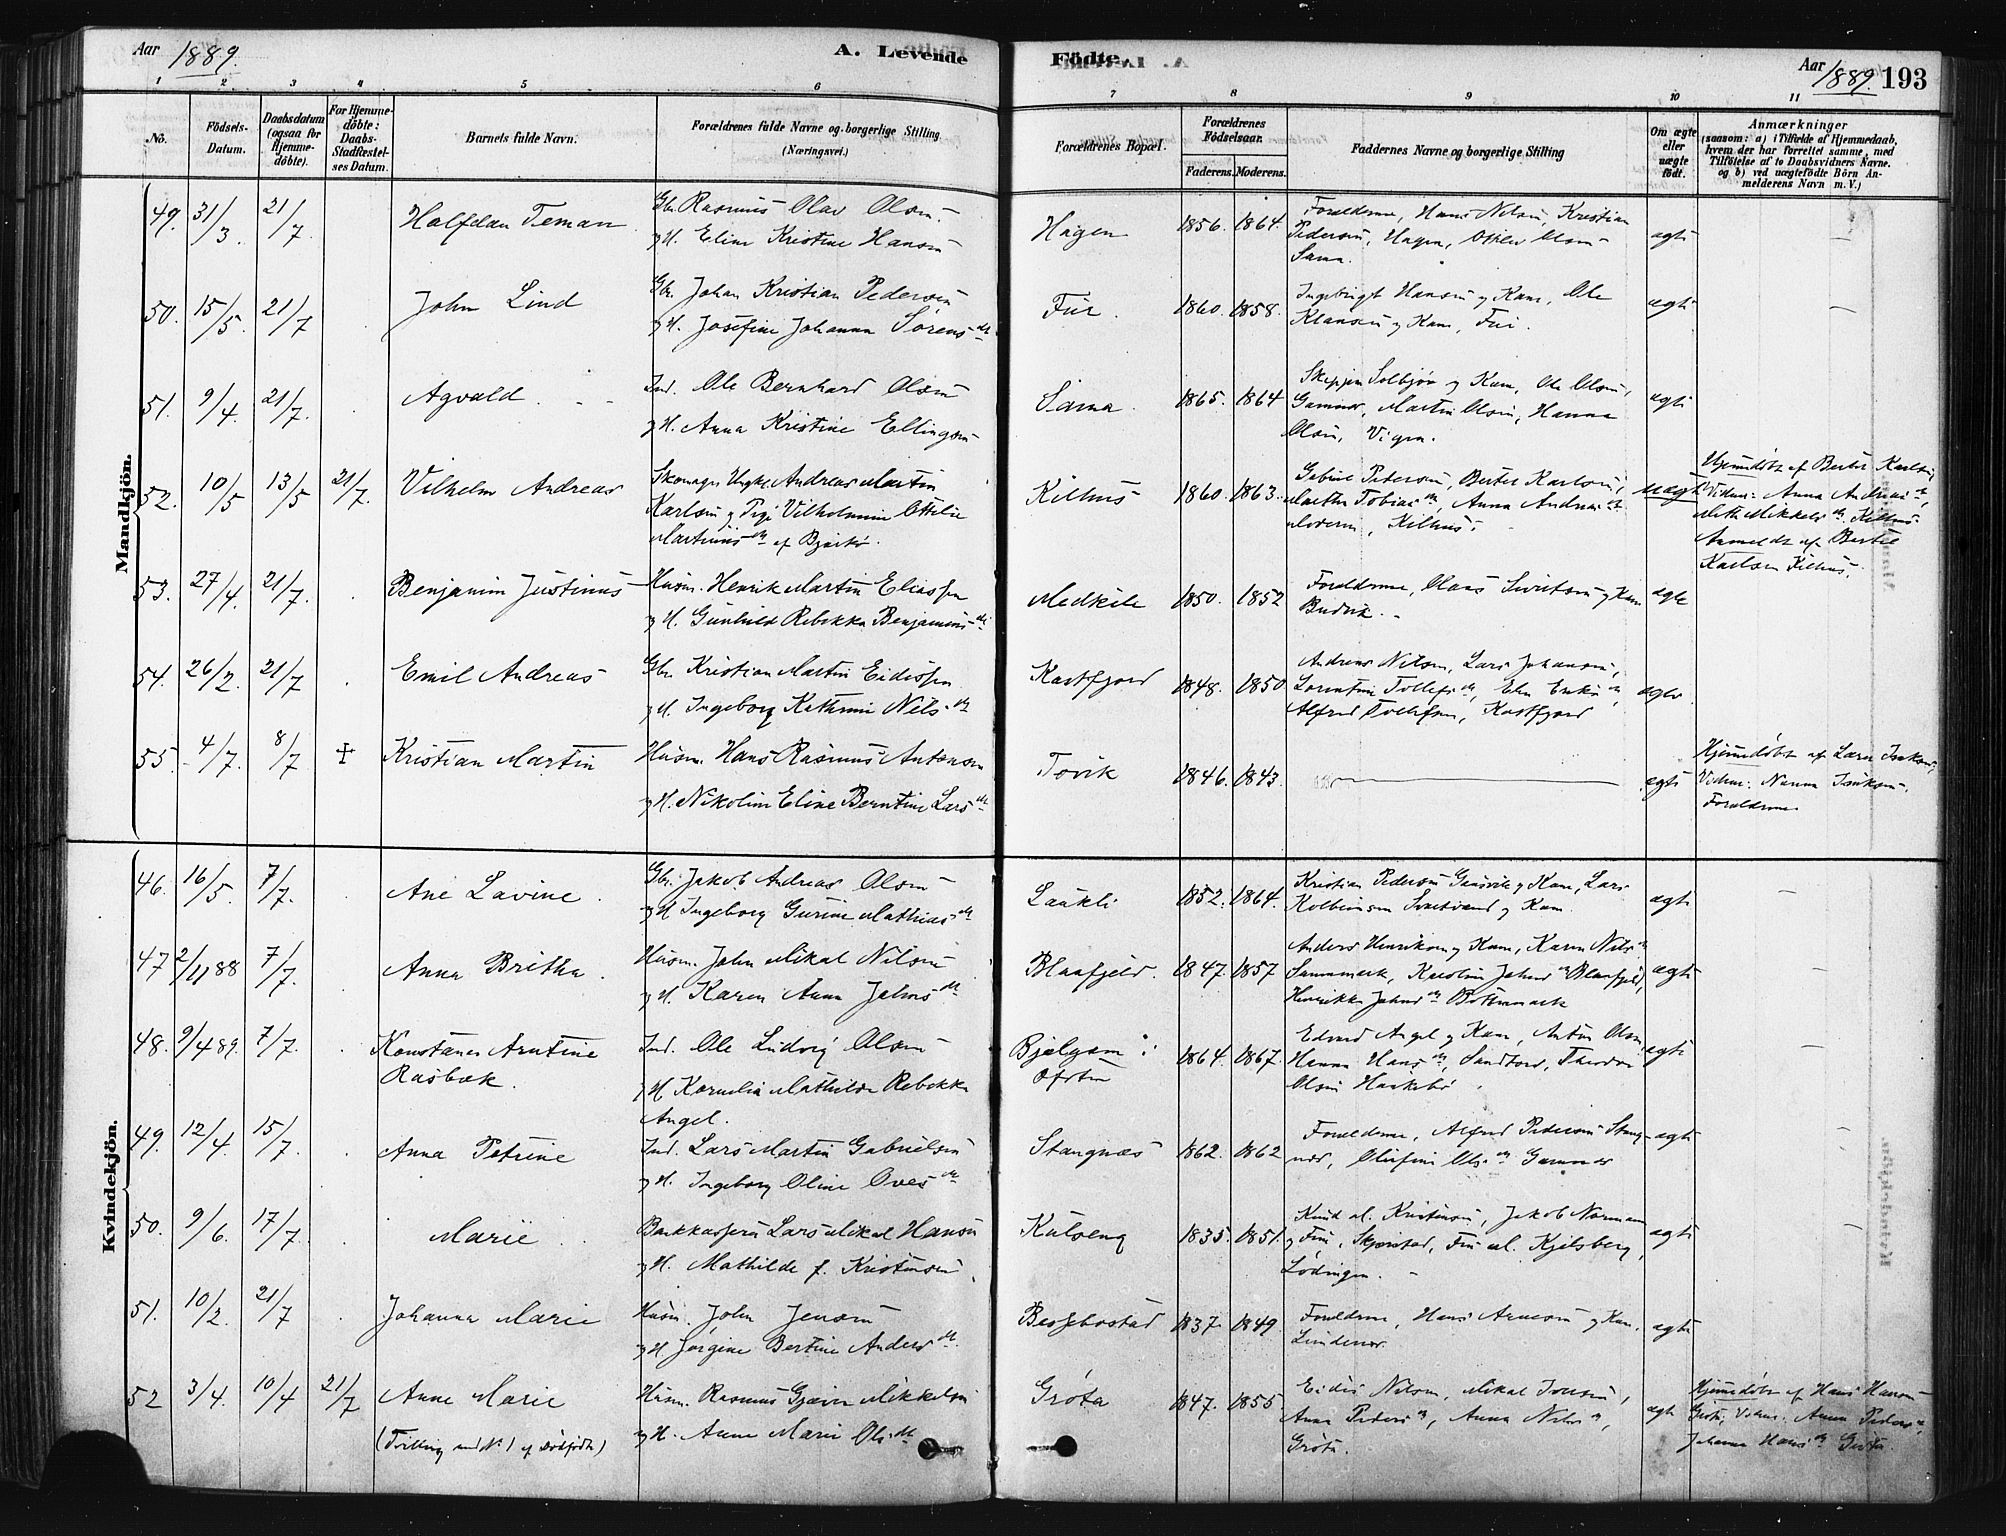 Aar 1889. A. Levende Födte. Aar 1889. 193
1 2 3 4 5 6 7 8 9 10 11
No.
Födsels-Datum.
Daabsdatum (ogsaa för Hjemme-döbte).
For Hjemme-döbte: Daabs-Stadfæstel-ses Datum.
Barnets fulde Navn.
Forældrenes fulde Navne og borgerlige Stilling (Næringsvei.)
Forældrenes Bopæl.
Forældrenes Födselsaar.
Faderens. Moderens.
Faddernes Navne og borgerlige Stilling
Om ægte eller uægte födt.
Anmærkninger
(saasom: a) i Tilfælde af Hjemmedaab, hvem der har forrettet samme, med Tilföielse af to Daabsvidners Navne, og b) ved uægtefödte Börn An-melderens Navn m. V.)
Mandkjön.
49. 31/3 21/7 Halfdan Teman Gbr. Rasmus Olav Olsen
og H. Eline Kristine Hansen Hagen 1856. 1864. Forældrene, Hans Nilsen, Kristian
Pedersen, Hagen, Olsen
Sama. ægte —
50. 15/5. 21/7 John Lind Gbr. Johan Kristian Pedersen
og H. Josefine Johanna Sörensdtr Fur. 1860. 1858. Ingebrigt Hansen og Kone, Ole
Klausen og Kone, Fur. ægte —
51. 9/4. 21/7. Agvald Ind. Ole Bernhard Olsen
og H. Anna Kristine Ellingsen Sama. 1865. 1864 Skipper Solbjör og Kone, Ole Olsen,
Gamnes, Martin Olsen, Hanna
Olsen, Vigen. ægte
52. 10/5 13/5 21/7. Vilhelm Andreas Skomager Ungk. Andreas Martin
Karlsen og Pige Vilhelmine Ottilie
Martinusdtr af Bjarkö. Kilhus 1860. 1863. Petersen, Berter Karlsen,
Marthe Tobiasdtr, Anna Andreasdtr
Moderen, Kilhus. uægte Hjemmedöbt af Karlsen,
Vidner: Anna Andreasdtr,
Mette Mikkelsdtr Kilhus.
Anmeldt af
Karlsen Kilhus.
53. 27/4. 21/7. Benjamin Justinus Husm. Henrik Martin Eliassen
og H. Gunhild Rebekka Benjaminsdtr Medkile 1850. 1852 Forældrene, Klaus Sivertsen og Kone
Budvik. ægte
54. 26/2. 21/7 Emil Andreas Gbr. Kristian Martin Eidissen
og H. Ingeborg Kathrine Nilsdtr Kastfjord 1848. 1850 Andreas Nilsen, Lars Johansen,
Lorentine Tollefsdtr, Elen Eriksdtr,
Alfred Tollefsen, Kastfjord ægte
55. 4/7. 8/7 Kristian Martin Husm. Hans Rasmus Antonsen
og H. Nikoline Eline Berntine Larsdtr Tovik 1846. 1843. — ægte Hjemmedöbt af Lars Isaksen,
Vidner: Nanna Isaksen,
Forældrene
Kvindekjön.
46. 16/5. 7/7. Ane Lavine Gbr. Jakob Andreas Olsen
og H. Ingeborg Gurine Mathiasdtr Laukli 1852. 1864. Kristian Pedersen Gausvik og Kone, Lars
Kolbeinsen Svartvand og Kone ægte —
47 2/11 88 7/7. Anna Britha Husm. John Mikal Nilsen
og H. Karen Anna Johnsdtr Blaafjeld. 1847. 1857 Anders Henriksen og Kone, Karen Nilsdtr
Sammark, Karoline Johnsdtr Blaafjeld,
Henrikke Johnsdtr Bottenmark ægte —
48. 9/4 89. 7/7. Konstanse Arntine
Rasbæk. Ind. Ole Ludvig Olsen
og H. Kornelia Mathilde Rebekka
Angel. Bjælgam i
Ofoten 1864. 1867. Edvard Angel og Kone, Anton Olsen,
Hanna Hansdtr, Sandtorv, Theodor
Olsen ægte —
49. 12/4. 15/7. Anna Petrine Ind. Lars Martin Gabrielsen
og H. Ingeborg Oline Ovesdtr Stangnæs 1862. 1862 Forældrene, Alfred Pedersen Stang-
næs, Olufine Olsdtr Gamnes ægte —
50. 9/6. 17/7. Marie Bankkasserer Lars Mikal Hansen
og H. Mathilde f. Kristensen. Kulseng 1835. 1851. Knud M. Kristensen, Jakob Norman
og Fru, Skjærstad, Fru M. Kjelsberg,
Lödingen. ægte —
51. 10/2. 21/7. Johanna Marie Husm. John Jensen
og H. Jörgine Bertine Andersdtr. Bessebostad 1837. 1849. Forældrene, Hans Arnesen og Kone,
ægte
52 3/4. 10/4 21/7 Anne Marie
(Tvilling med No 1 af Dödfödte) Husm. Rasmus Gjæver Mikkelsen
og H. Anne Marie Olsdtr Gröta 1847. 1855 Eidis Nilsen, Mikal Jonsen,
Anna Pedersdtr, Anna Nilsdtr,
Gröta. ægte Hjemmedöbt af Hans Hansen
Gröta, Vidner: Anna Pedersdtr,
Johanna Hansdtr Gröta.